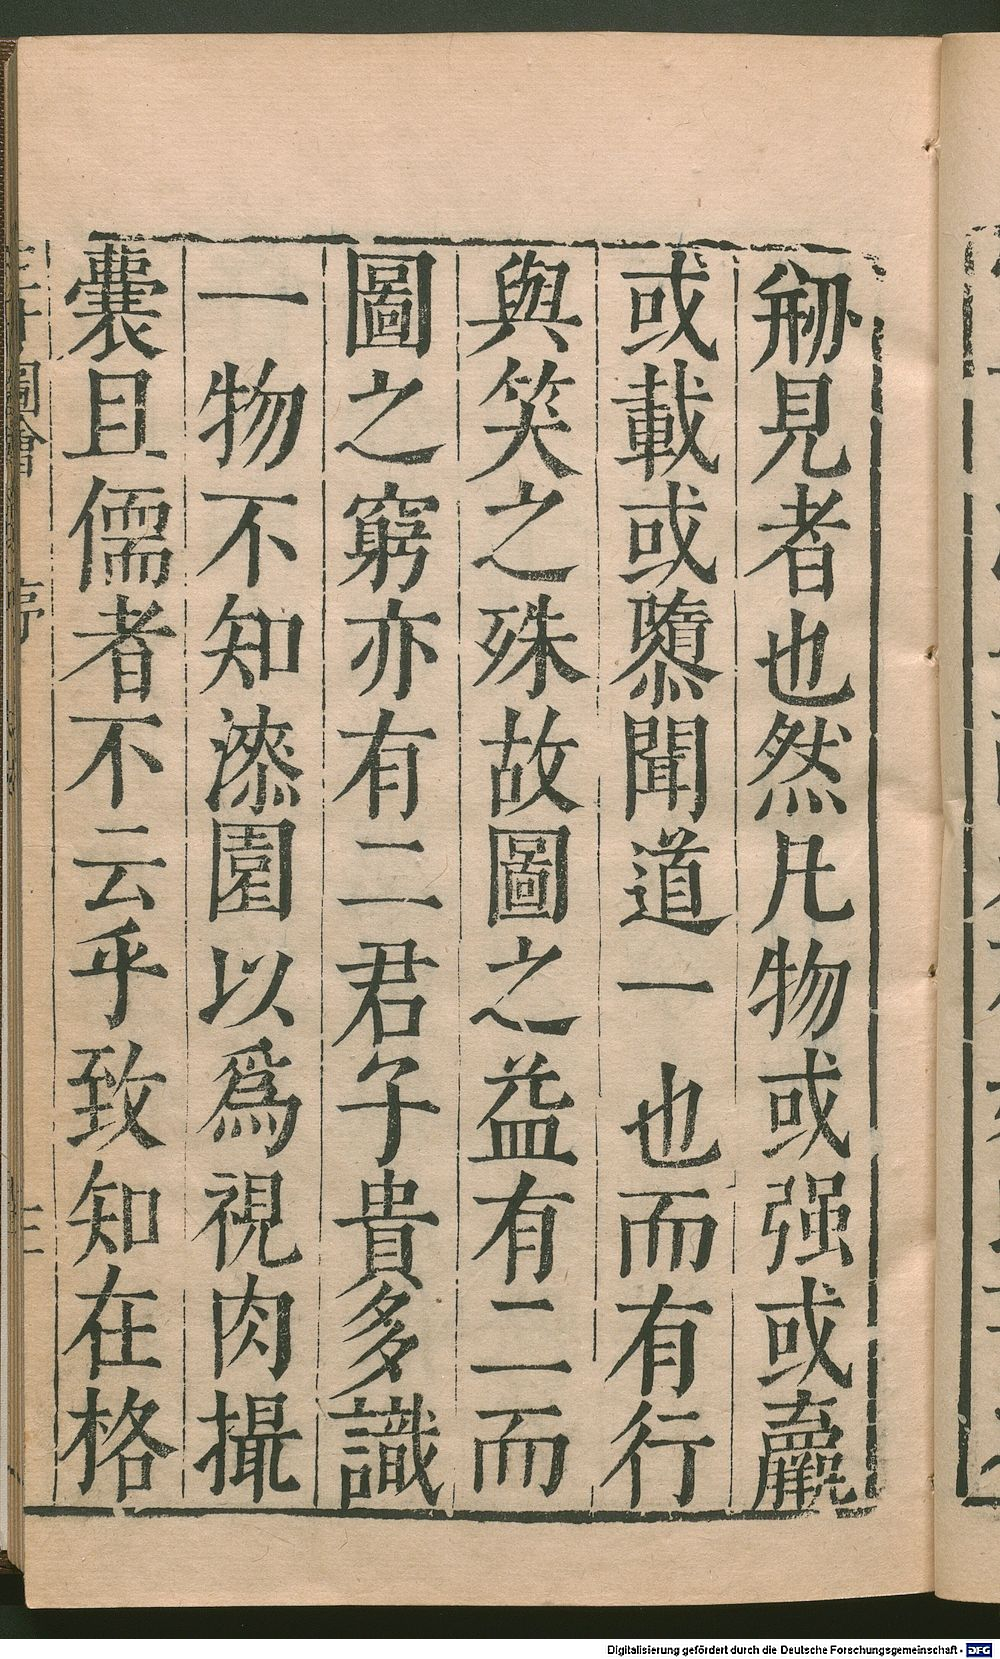 剏見者也然凡物或强或羸
或載或隳聞道一也而有行
與笑之殊故圖之益有二而
圖之窮亦有二君子貴多識
一物不知漆園以為視肉撮
囊且儒者不云乎致知在格
圖會 序 三
Digitalisierung gefördert durch die Deutsche Forschungsgemeinschaft - DFG